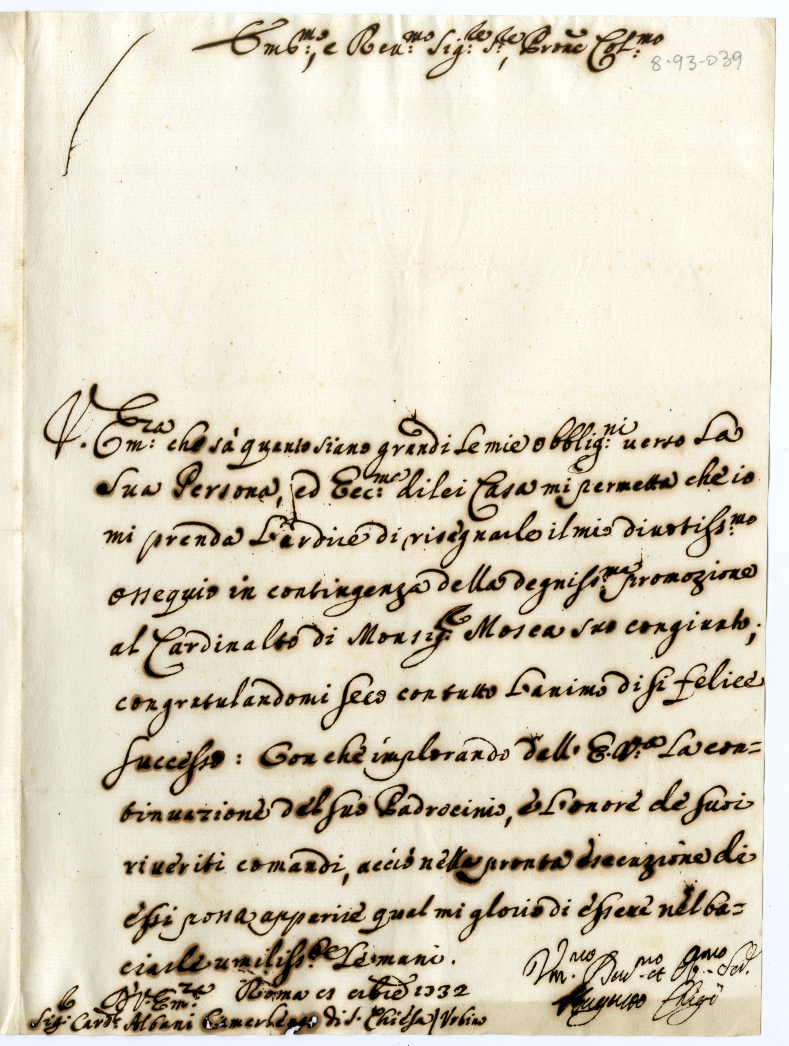 Em̃o, e Reu.mo Sig.re Sig.re, Prone Col.mo
8-93-039
V. Em.za che sà quanto siano grandi le mie obblig.ni uerso la
sua Persona, ed Ecc.ma di lei Casa mi permetta che io
mi prenda l'ardire di risegnarle il mio diuotiss.mo
ossequio in contingenza della degniss.ma promozione
al Cardinalto di Monsig.re Mosca suo congiunto;
congratulandomi seco con tutto l'animo di si felice
successo: Con che implorando dall' E. V.ra la con=
tinuazione del suo Padrocinio, e l'onore de suoi
riueriti comandi, acciò nella pronta esecuzione di
essi possa apparire qual mi glorio di essere nel ba=
ciarle umiliss.te le mani.
D V. Em.za Roma 1732
Sig. Card. Albani Camerlengo di S. Chiesa / Urbino